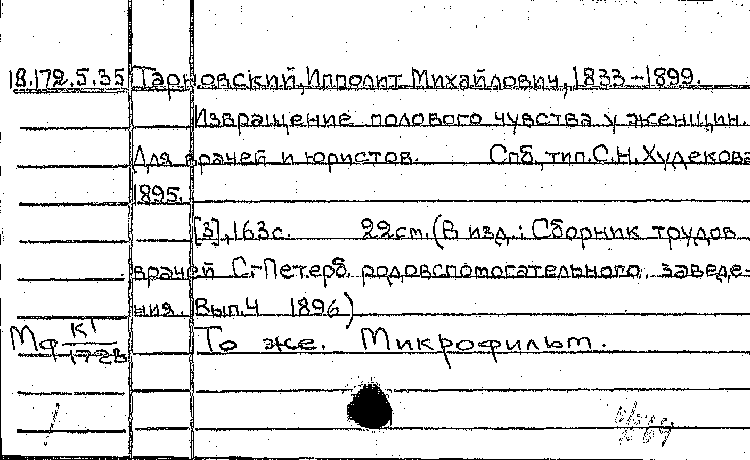 18.172.5.35 Тарновский, Ипполит Михайлович, 1833-1899.
Извращение полового чувства у женщин.
Для врачей и юристов. Спб, тип. С.Н. Худекова
1895.
[3], 163с. 22см. (В изд.: Сборник трудов
врачей С-Петерб. родовспомогательного заведе-
ния. Вып. 4 1896)
Мф К1 То же. Микрофильм.